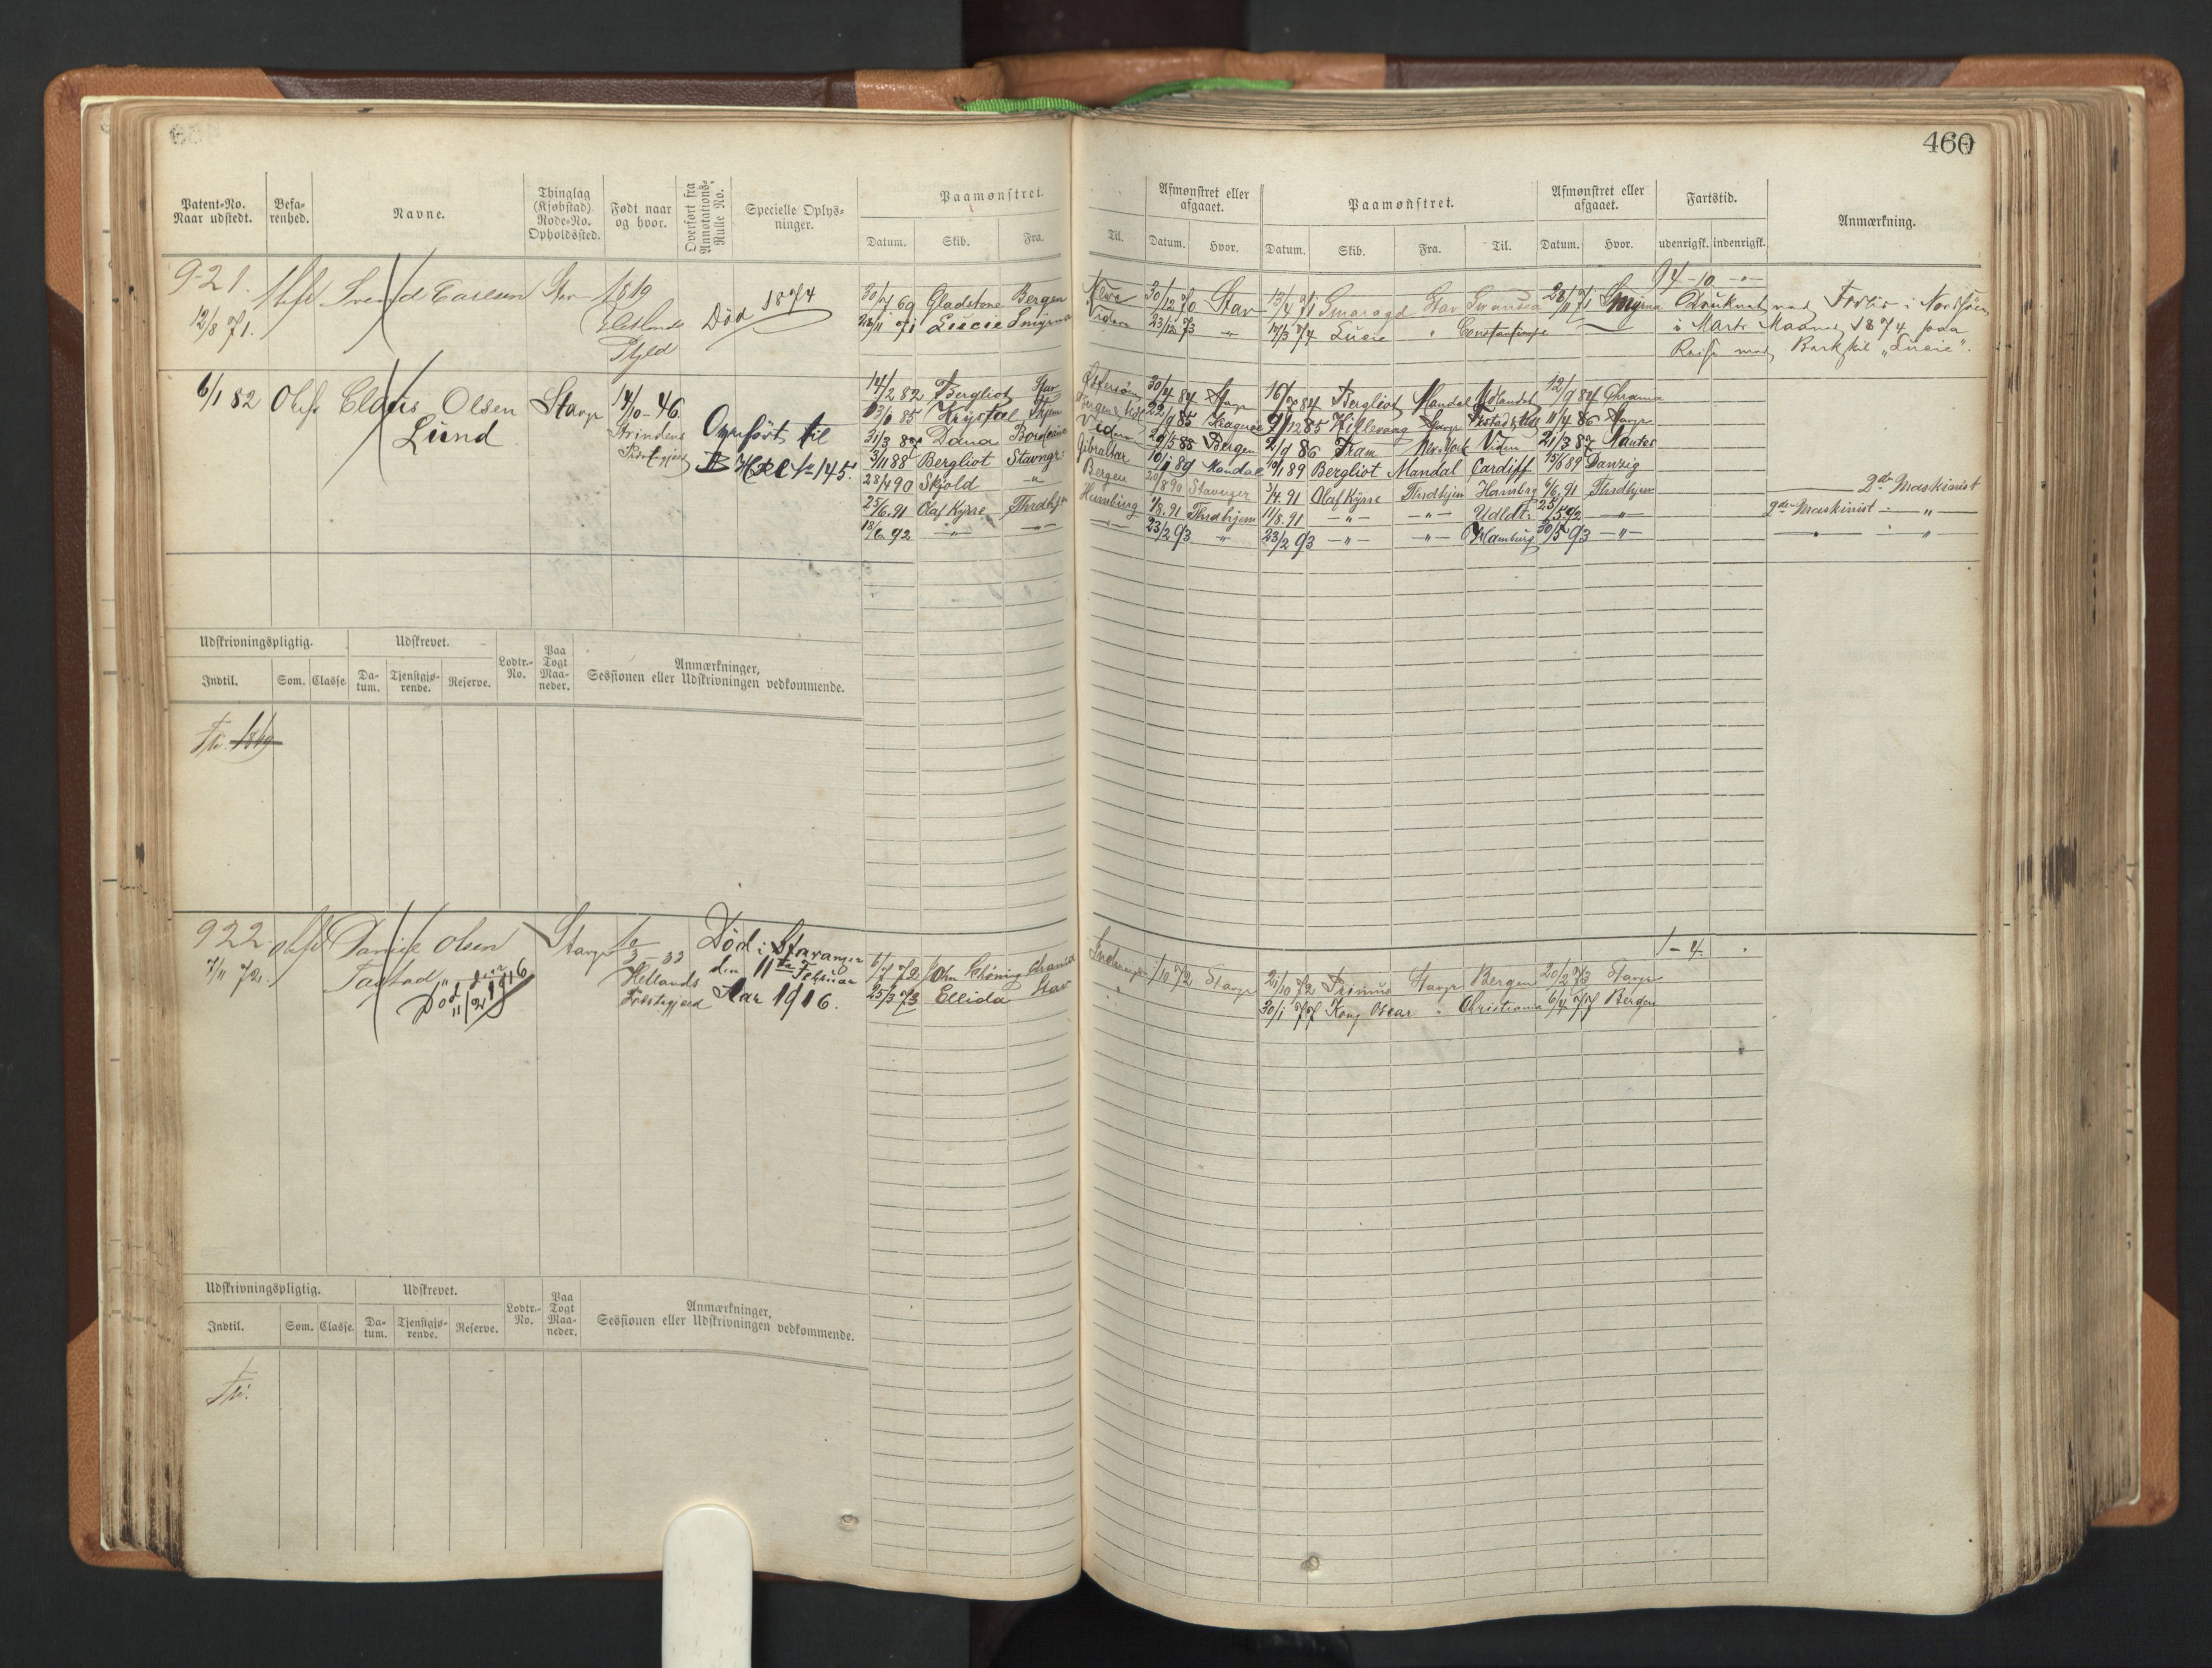 460
Patent-No. Naar udstedt.
Befarenhed.
Navne.
Thinglag (Kjøbstad) Rode-No. Opholdssted.
Født naar og hvor.
Overført fra Annotations-Rulle No.
Specielle Oplysninger.
Paamønstret.
Datum. Skib. Fra. Til.
Afmønstret eller afgaaet.
Datum. Hvor.
Paamønstret.
Datum. Skib. Fra. Til.
Afmønstret eller afgaaet.
Datum. Hvor.
Fartstid.
udenrigsk. indenrigsk.
Anmærkning.
921.
12/8 71.
Svend Carlsen Stav 1819
Død 1874
30/7 69 Gladstone Bergen 30/12 70 Stav 13/4 71 Smaragd Stav Swansea 28/11 71 Smyrna
28/11 71 Lucie Smyrna Viden 23/12 73 " 14/3 74 Lucie "
94-10-"-
Druknet i Nordsjøen
i Marts Maaned 1874 paa
Reise med Barkskib „Lucie".
6/1 82 Claus Olsen Stavgr 14/10-46
Lund
Strinden
Overført til
14/2 82 Bergliot Stav Østersøen 30/4 84 Stavgr 16/7 84 Bergliot Mandal Udlandet 12/9 84 Chrania
Krystal 85 Kragerø 9/12 85 Hillevaag Stavgr 11/4 86 Stavgr
31/3 87 Dana Bordeaux Viden 29/5 88 Bergen 2/9 86 Fram New York Viden 21/3 87 Nantes
3/11 88 Bergliot Stavngr: Gibraltar 10/1 89 Mandal 10/1 89 Bergliot Mandal Cardiff 15/6 89 Danzig
28/4 90 Skjold -"- Bergen 20/8 90 Stavanger 3/4.91 Olaf Kyrre Thrdhjem Hambrg 6/6.91 Thrdhjem 2den Maskinist
25/6.91 Olaf Kyrre Thrdhjm Hamburg 1/8.91 Thrdhjem 11/8.91 -"- -"- Udldt: 25/5 92 -"- 2den Maskinist -"-
18/6 92 -"- -"- 23/2 93 " 23/2 93 -"- -"- Hamburg 30/5 93 -"- -"-
Udskrivningspligtig.
Indtil. Som. Classe.
Udskrevet.
Datum. Tjenstgjørende. Reserve.
Lodtr.-No.
Paa Togt Maaneder.
Anmærkninger, Sessionen eller Udskrivningen vedkommende.
1869
922.
7/11 72.
Olsen
Tastad
Død den 11/2 1916
Stavgr
3-33
Hetlands
Præstegjeld
Død i Stavanger
den 11te Februar
Aar 1916.
6/7 72 John Schöning Chrania 1/10 72 Stavgr 21/10 72 Primus Stavgr Bergen 20/2 73 Stavgr
25/3 73 Ellida Stav 30/1 77 Kong Oscar " Christiania 6/4 77 Bergen
1-4
Udskrivningspligtig.
Indtil. Som. Classe.
Udskrevet.
Datum. Tjenstgjørende. Reserve.
Lodtr.-No.
Paa Togt Maaneder.
Anmærkninger, Sessionen eller Udskrivningen vedkommende.